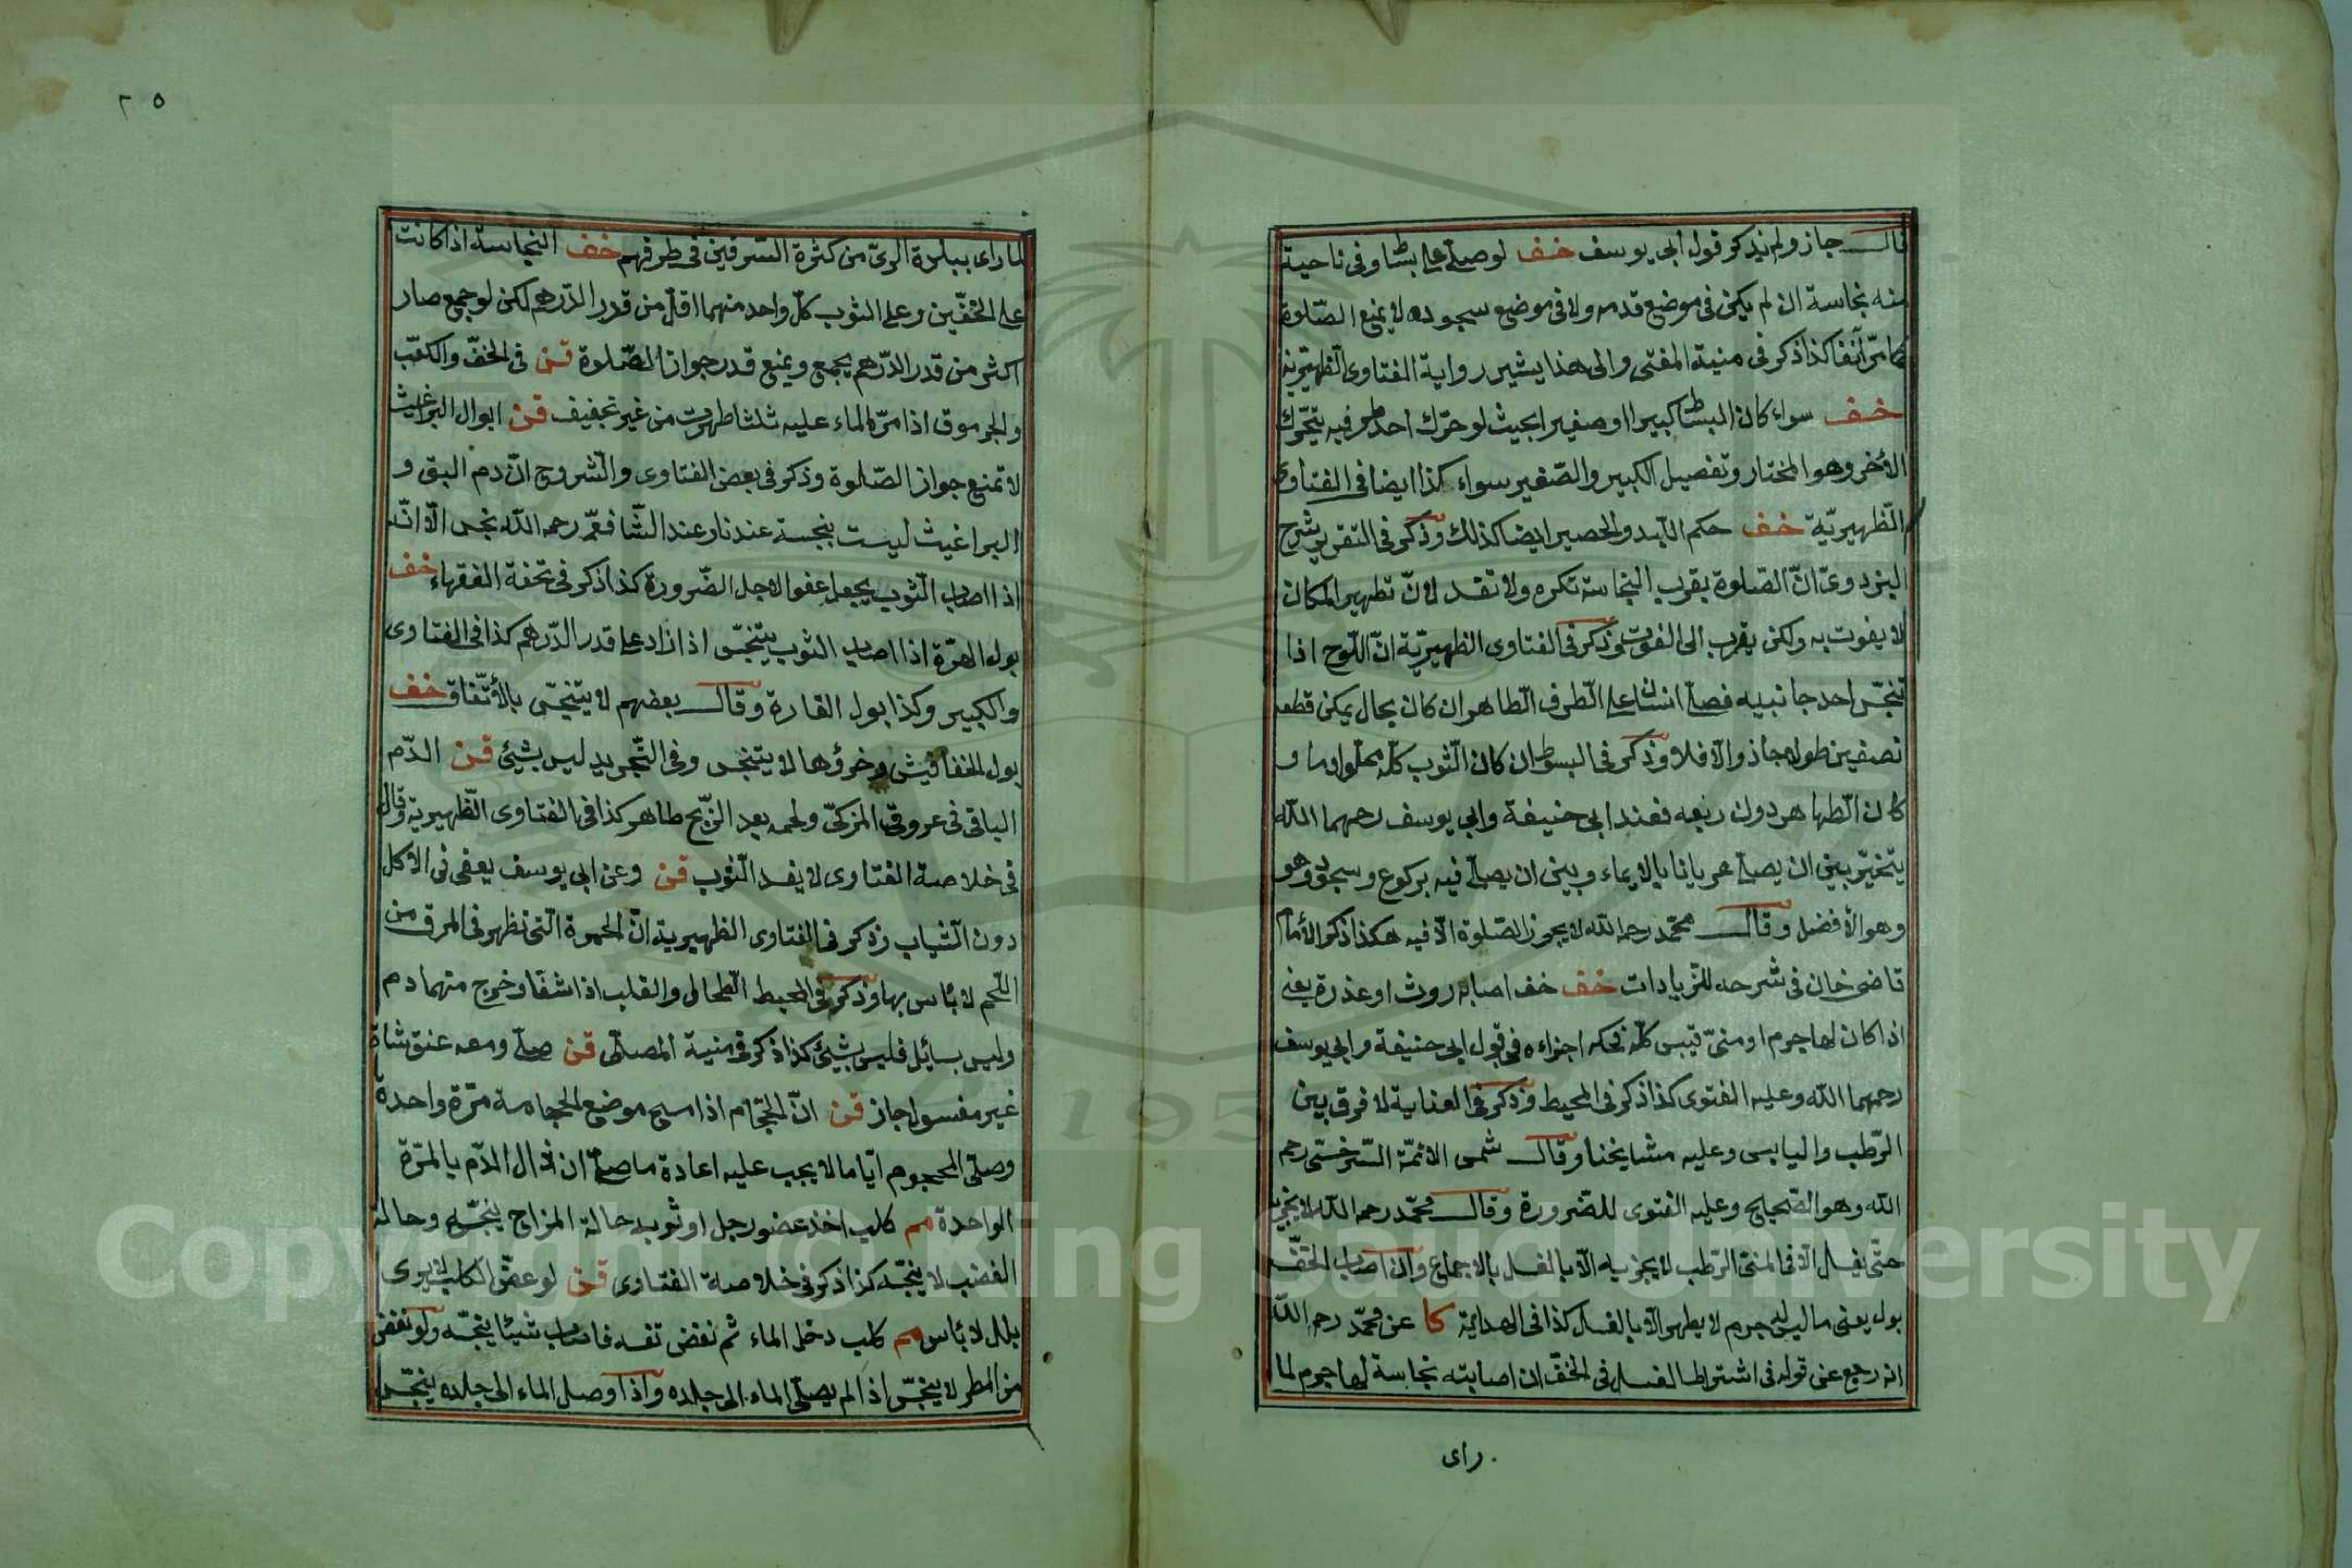 قال جاز ولم يذكر قول ابى يوسف خف لو صلى على بساط وفى ناحية
منه نجاسة ان لم يكن فى موضع قدمه ولا فى موضع سجوده لا يمنع الصّلوة
كما مرّ آنفا كذا ذكر فى منية المفتى والى هذا يشير رواية الفتاوى الظهيريّة
خف سواء كان البساط كبيرا او صغيرا بحيث لو حرّك احد طرفيه يتحرّك
الأخر وهو المختار وتفصيل الكبير والصّغير سواء كذا ايضا فى الفتاوى
الظّهيريّة خف حكم اللّبد والحصير ايضا كذلك وذكر فى التقرير شرح
البزدوىّ انّ الصّلوة بقرب النجاسة تكره ولا تفسد لانّ تطهير المكان
لا يفوت به ولكن يقرب الى الفوت وذكر فى الفتاوى الظهيريّة انّ اللّوح اذا
تنجّس احد جانبيه فصلّى انسان على الطّرف الطّاهر ان كان بحال يمكن قطعه
نصفين طولا جاز والّا فلا وذكر فى المبسوط ان كان الثّوب كلّه مملوا دما و
كان الطّاهر دون ربعه فعند ابى حنيفة وابى يوسف رحمهما اللّه
يتخيّر بين ان يصلى عريانا بالايماء وبين ان يصلّى فيه بركوع وسجود وهو
وهو الأفضل وقال محمّد رحمه اللّه لا يجوز الصّلوة الّا فيه هكذا ذكر الأمام
قاضى خان فى شرحه للزّيادات خف خف اصابه روث او عذرة يعنى
اذا كان لها جرم او منىّ فيبس كلّه فحكه اجزاءه فى قول ابى حنيفة وابى يوسف
رحمهما اللّه وعليه الفتوى كذا ذكر فى المحيط وذكر فى العناية لا فرق بين
الرّطب واليابس وعليه مشايخنا وقال شمس الائمّة السّرخسىّ رحمه
اللّه وهو الصّحيح وعليه الفتوى للضّرورة وقال محمّد رحمه اللّه لا يجزيه
حتّى يغسل الّا فى المنىّ الرّطب لا يجزيه الّا بالغسل بالاجماع وان اصاب الخفّ
بول يعنى ما ليس له جرم لا يطهر الّا بالغسل كذا فى الهداية كا عن محمّد رحمه اللّه
انه رجع عن قوله فى اشتراط الغسل فى الخفّ ان اصابته نجاسة لها جرم لما
راى
٢٥
لما راى ببلدة الرىّ من كثرة السّرقين فى طرقهم خف النجاسة اذا كانت
على الخفّين وعلى الثوب كلّ واحد منهما اقلّ من قدر الدّرهم لكن لو جمع صار
اكثر من قدر الدّرهم يجمع ويمنع قدر جواز الصّلوة قن فى الخفّ والكعب
والجرموق اذا مرّ الماء عليه ثلثا طهرت من غير تجفيف قن ابوال البراغيث
لا تمنع جواز الصّلوة وذكر فى بعض الفتاوى والشروح انّ دم البق و
البراغيث ليست بنجسة عندنا وعند الشّافعىّ رحمه اللّه نجس الّا انّه
اذا اصاب الثوب يجعل عفوا لاجل الضّرورة كذا ذكر فى تحفة الفقهاء خف
بول الهرّة اذا اصاب الثوب يتنجّس اذا زاد على قدر الدّرهم كذا فى الفتاوى
والكبير وكذا بول الفارة وقال بعضهم لا يتنجّس بالأتّفاق خف
بول الخفافيش وخرؤها لا يتنجس وفى التّجريد ليس بشيئ قن الدّم
الباقى فى عروق المزكّى ولحمه بعد الزّبح طاهر كذا فى الفتاوى الظّهيرية وقال
فى خلاصة الفتاوى لا يفسد الثوب قن وعن ابى يوسف يعفى فى الاكل
دون الثّياب وذكر فى الفتاوى الظهيرية انّ الحمرة الّتى تظهر فى المرق من
اللّحم لا بأس بها وذكر فى المحيط الطّحال والقلب اذا شقا وخرج منهما دم
وليس بسائل فليس بشيئ كذا ذكر فى منية المصلّى قن صلّى ومعه عنق شاة
غير مغسول جاز قن انّ الحجّام اذا مسح موضع الحجامة مرّة واحدة
وصلّى المحجوم ايّاما لا يجب عليه اعادة ما صلّى ان زال الدّم بالمرّة
الواحدة مم كلب اخذ عضو رجل او ثوبه حالة المزاح ينجّسه وحالة
الغضب لا ينجّسه كذا ذكر فى خلاصة الفتاوى قن لو عضّ الكلب لا يرى
بلل لا بأس مم كلب دخل الماء ثم نفض نفسه فاصاب شيئا ينجّسه ولو نفض
من المطر لا ينجّس اذا لم يصل الماء الى جلده واذا وصل الماء الى جلده ينجّس
Copyright © King Saud University